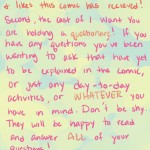 & likes this comic has recieved!
Second, the cast of I Want You
are holding a questionaire! If you
have any questions you've been
wanting to ask that have yet
to be explained in the comic,
or just any day-to-day
activities or WHATEVER you
have in mind. Don't be shy.
They will be happy to read
and answer ALL of your
questions!